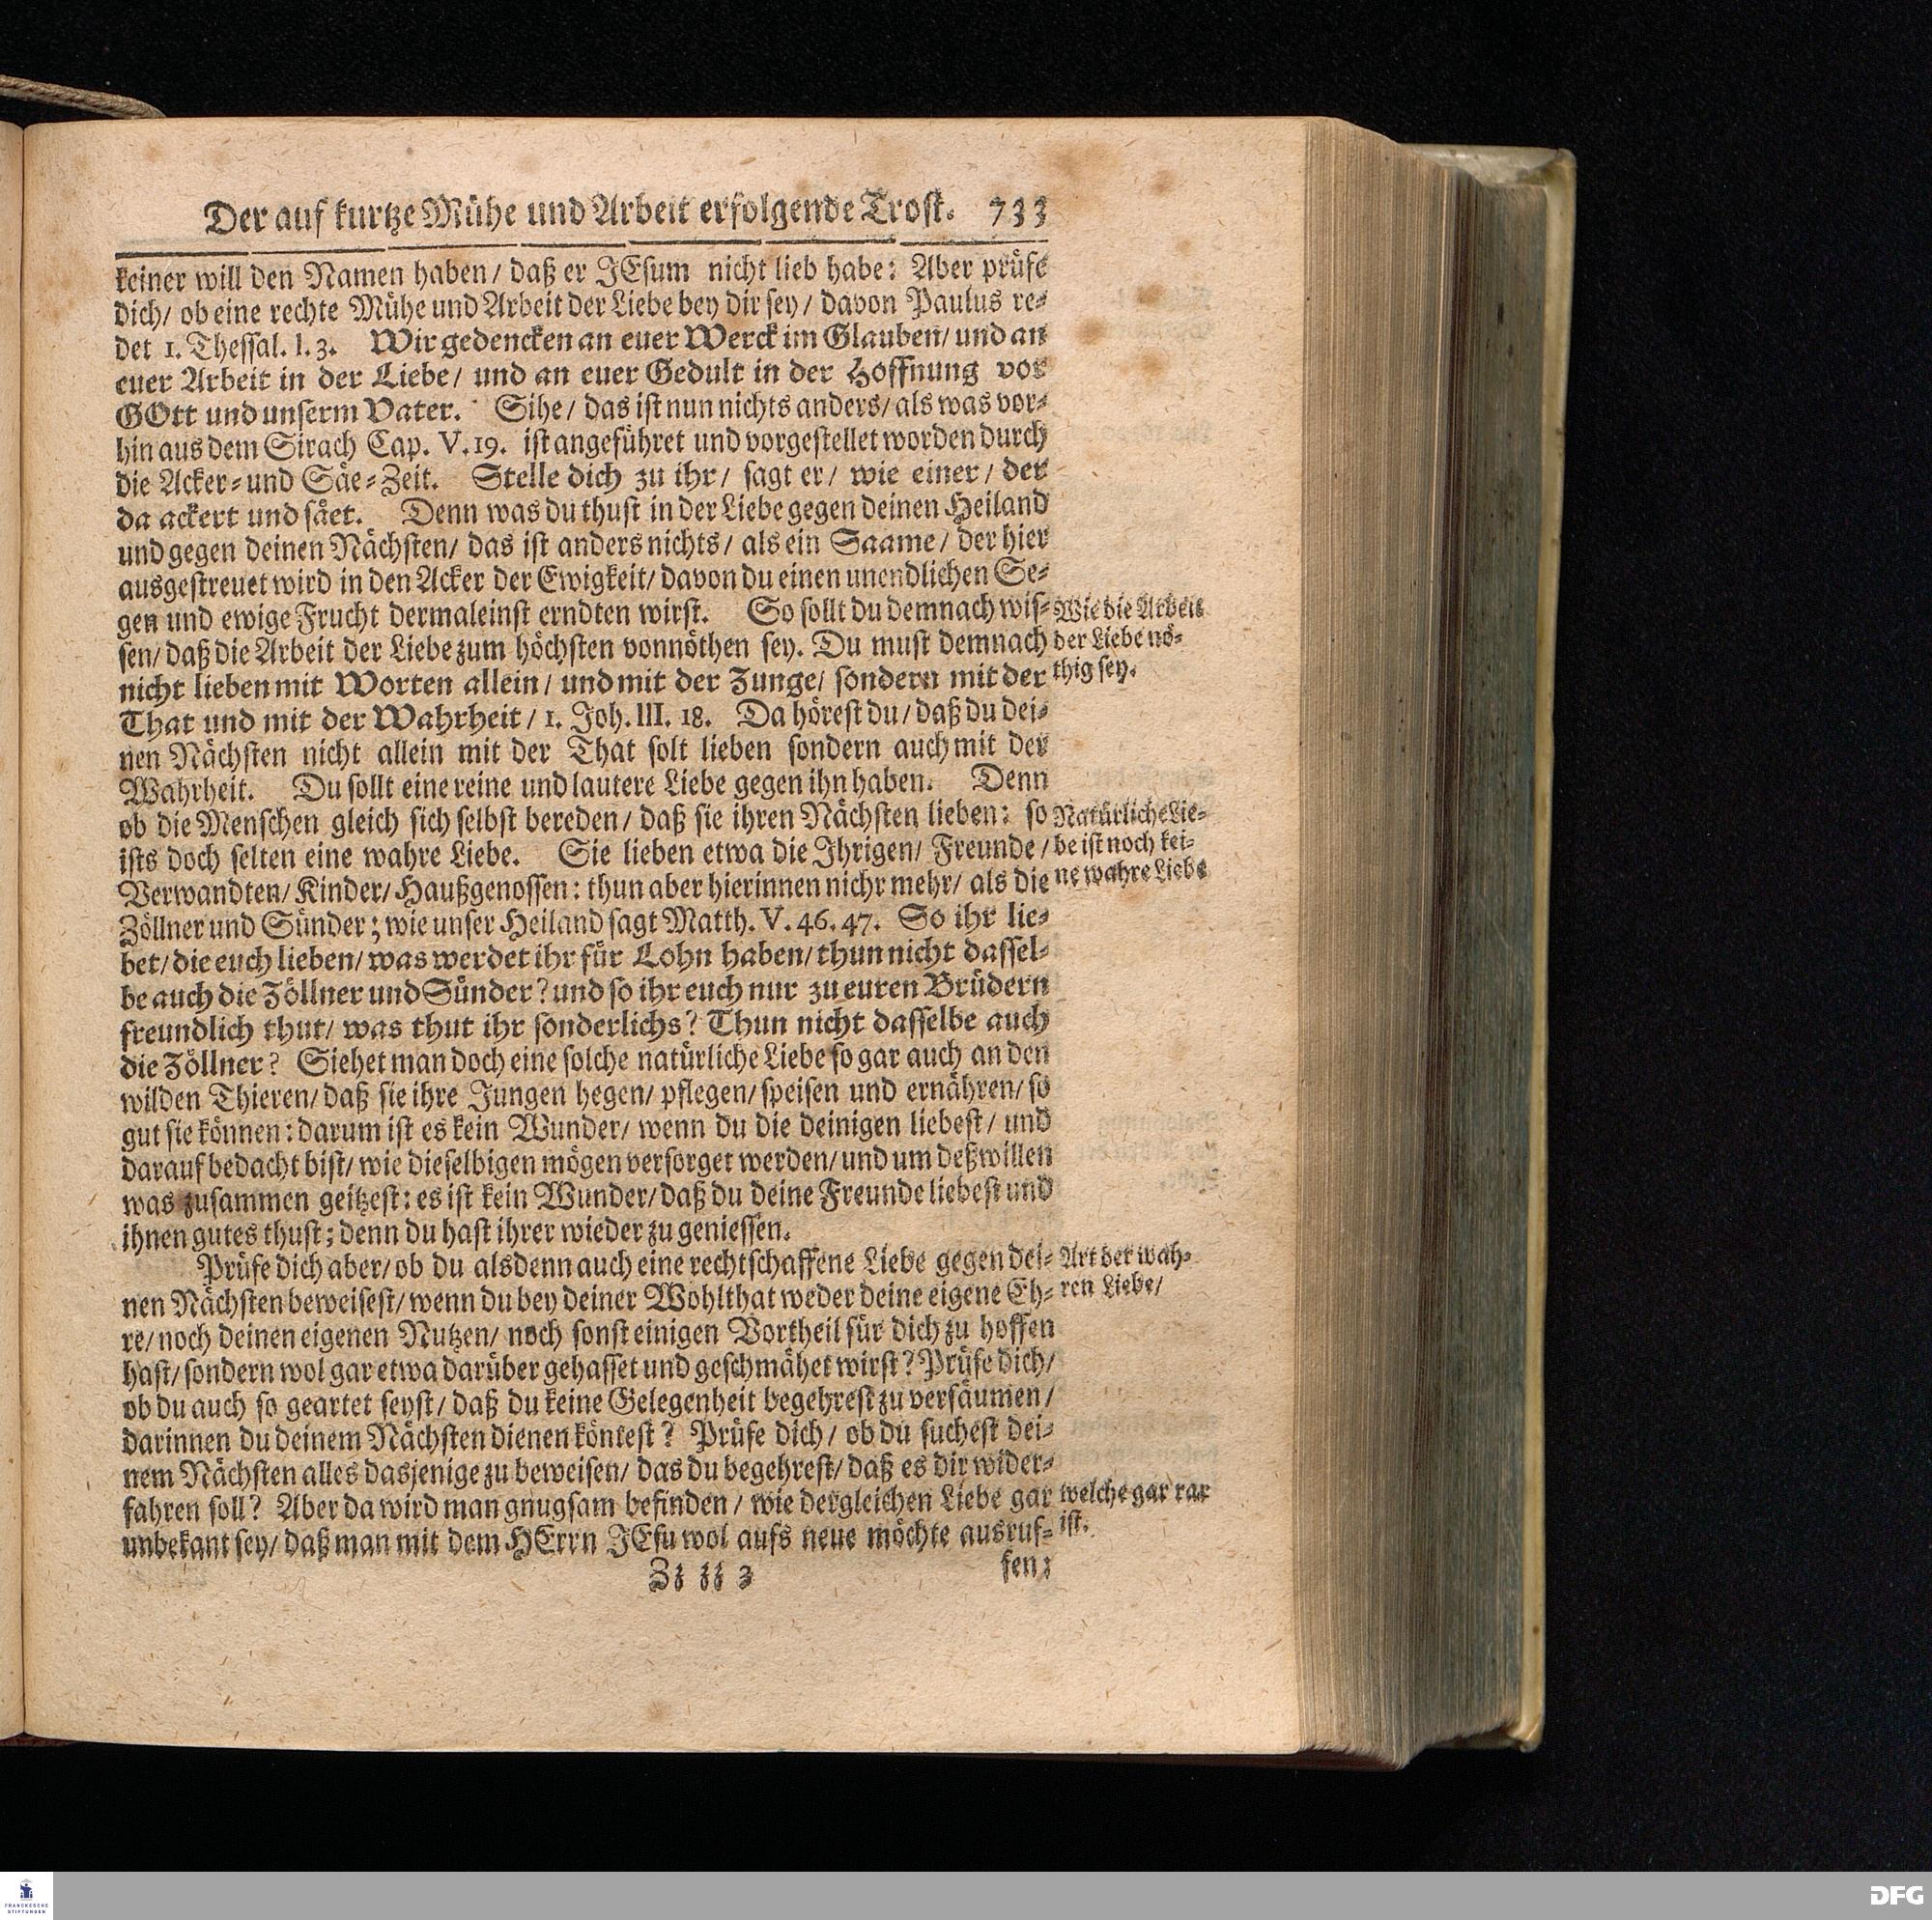 Der auf kurtze Mühe und Arbeit erfolgende Trost. 733
keiner will den Namen haben/ daß er JEsum nicht lieb habe: Aber prüfe
dich/ ob eine rechte Mühe und Arbeit der Liebe bey dir sey/ davon Paulus re-
det 1. Thessal. I. 3. Wir gedencken an euer Werck im Glauben/ und an
euer Arbeit in der Liebe/ und an euer Gedult in der Hoffnung vor
GOtt und unserm Vater. Sihe/ das ist nun nichts anders/ als was vor-
hin aus dem Sirach Cap. V. 19. ist angeführet und vorgestellet worden durch
die Acker- und Säe-Zeit. Stelle dich zu ihr/ sagt er/ wie einer/ der
da ackert und säet. Denn was du thust in der Liebe gegen deinen Heiland
und gegen deinen Nächsten/ das ist anders nichts/ als ein Saame/ der hier
ausgestreuet wird in den Acker der Ewigkeit/ davon du einen unendlichen Se-
gen und ewige Frucht dermaleinst erndten wirst. So sollt du demnach wis-
sen/ daß die Arbeit der Liebe zum höchsten vonnöthen sey. Du must demnach
nicht lieben mit Worten allein/ und mit der Zunge/ sondern mit der
That und mit der Wahrheit/ 1. Joh. III. 18. Da hörest du/ daß du dei-
nen Nächsten nicht allein mit der That solt lieben sondern auch mit der
Wahrheit. Du sollt eine reine und lautere Liebe gegen ihn haben. Denn
ob die Menschen gleich sich selbst bereden/ daß sie ihren Nächsten lieben: so
ists doch selten eine wahre Liebe. Sie lieben etwa die Ihrigen/ Freunde/
Verwandten/ Kinder/ Haußgenossen: thun aber hierinnen nichr mehr/ als die
Zöllner und Sünder; wie unser Heiland sagt Matth. V. 46. 47. So ihr lie-
bet/ die euch lieben/ was werdet ihr für Lohn haben/ thun nicht dassel-
be auch die Zöllner und Sünder? und so ihr euch nur zu euren Brüdern
freundlich thut/ was thut ihr sonderlichs? Thun nicht dasselbe auch
die Zöllner? Siehet man doch eine solche natürliche Liebe so gar auch an den
wilden Thieren/ daß sie ihre Jungen hegen/ pflegen/ speisen und ernähren/ so
gut sie können: darum ist es kein Wunder/ wenn du die deinigen liebest/ und
darauf bedacht bist/ wie dieselbigen mögen versorget werden/ und um deßwillen
was zusammen geitzest: es ist kein Wunder/ daß du deine Freunde liebest und
ihnen gutes thust; denn du hast ihrer wieder zu geniessen.
Prüfe dich aber/ ob du alsdenn auch eine rechtschaffene Liebe gegen dei-
nen Nächsten beweisest/ wenn du bey deiner Wohlthat weder deine eigene Eh-
re/ noch deinen eigenen Nutzen/ noch sonst einigen Vortheil für dich zu hoffen
hast/ sondern wol gar etwa darüber gehasset und geschmähet wirst? Prüfe dich/
ob du auch so geartet seyst/ daß du keine Gelegenheit begehrest zu versäumen/
darinnen du deinem Nächsten dienen köntest? Prüfe dich/ ob du suchest dei-
nem Nächsten alles dasjenige zu beweisen/ das du begehrest/ daß es dir wider-
fahren soll? Aber da wird man gnugsam befinden/ wie dergleichen Liebe gar
unbekant sey/ daß man mit dem HErrn JEsu wol aufs neue möchte ausruf-
Zz zz 3
fen:
Wie die Arbeit
der Liebe nö-
thig sey.
Natürliche Lie-
be ist noch kei-
ne wahre Liebe
Art der wah-
ren Liebe/
welche gar rar
ist.
FRANCKESCHE
STIFTUNGEN
DFG